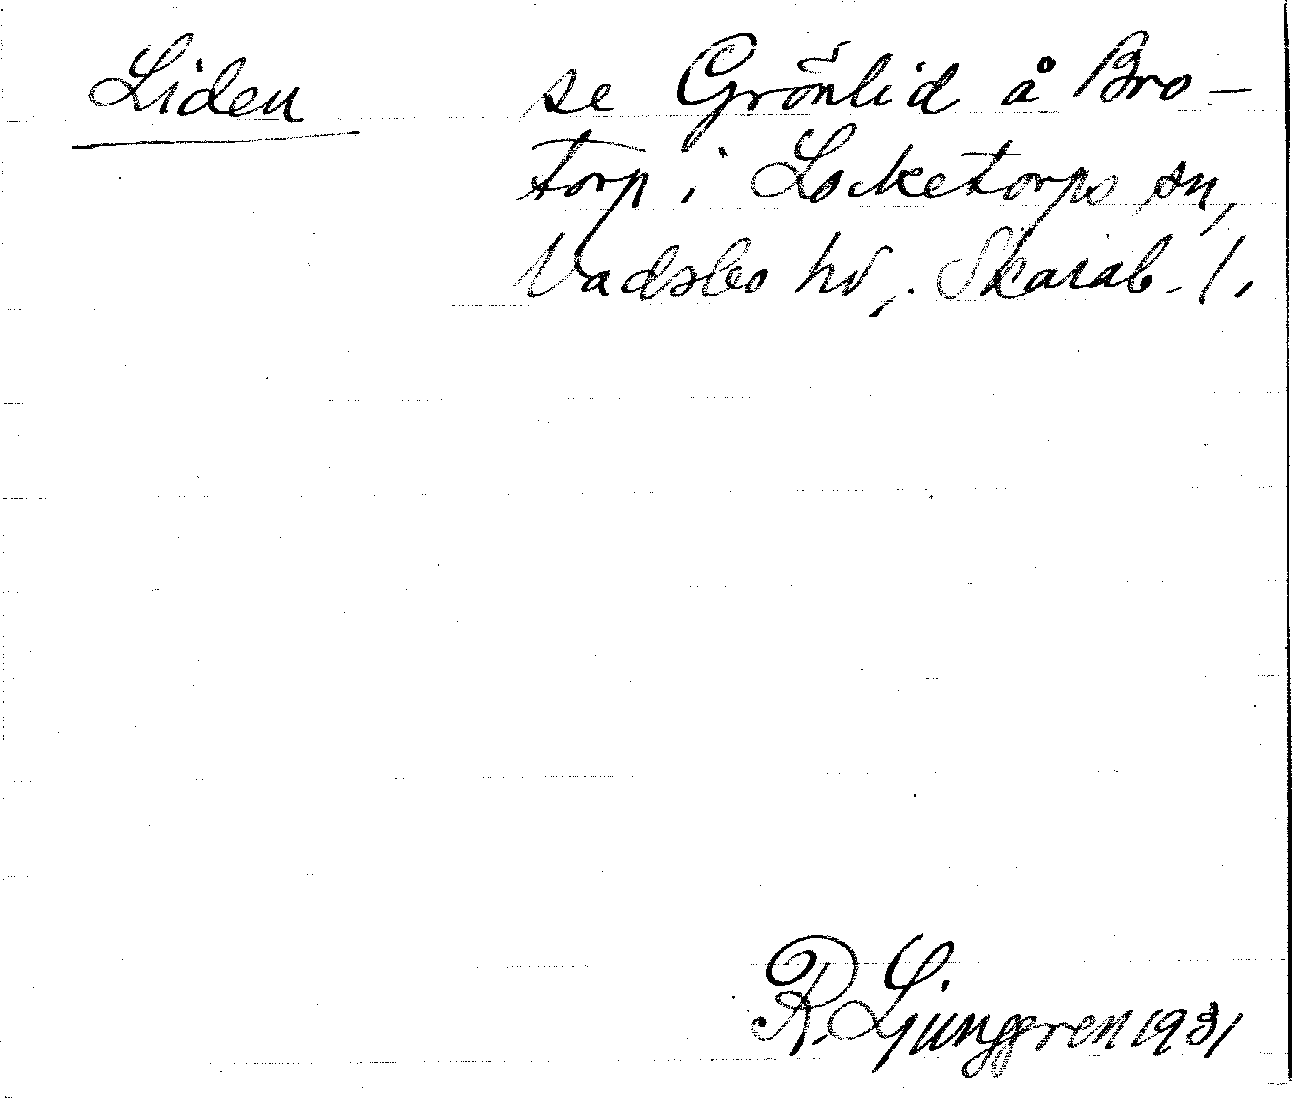 Liden se Grönlid å Bro-
torp i Locketorps sn,
Vadsbo hd, Skarab. l.
R. Ljunggren 1931